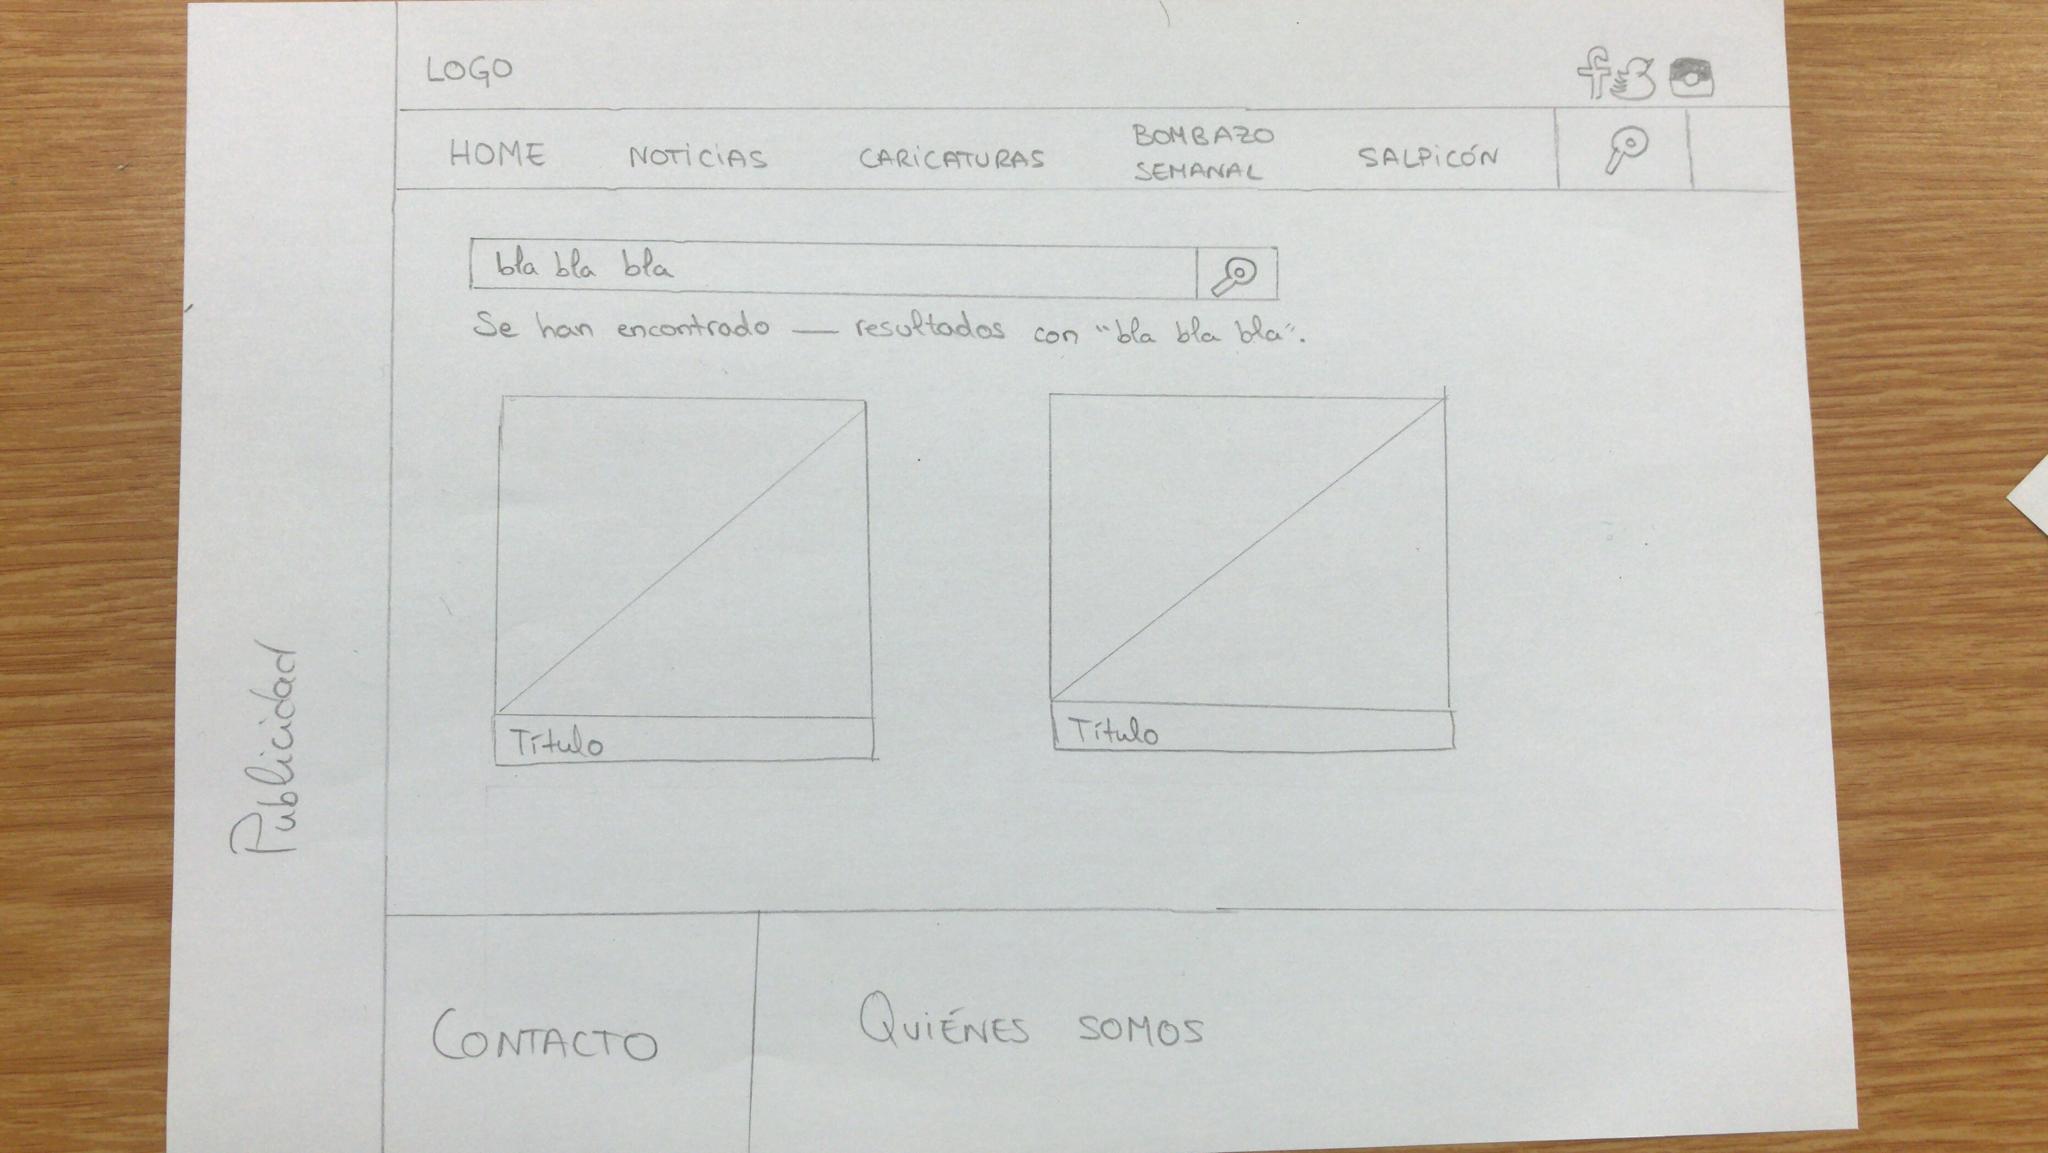 LOGO
HOME
NOTICIAS
CARICATURAS
BOMBAZO
SEMANAL
SALPICÓN
bla bla bla
Se han encontrado — resultados con "bla bla bla".
Título
Título
Publicidad
CONTACTO
QUIÉNES SOMOS